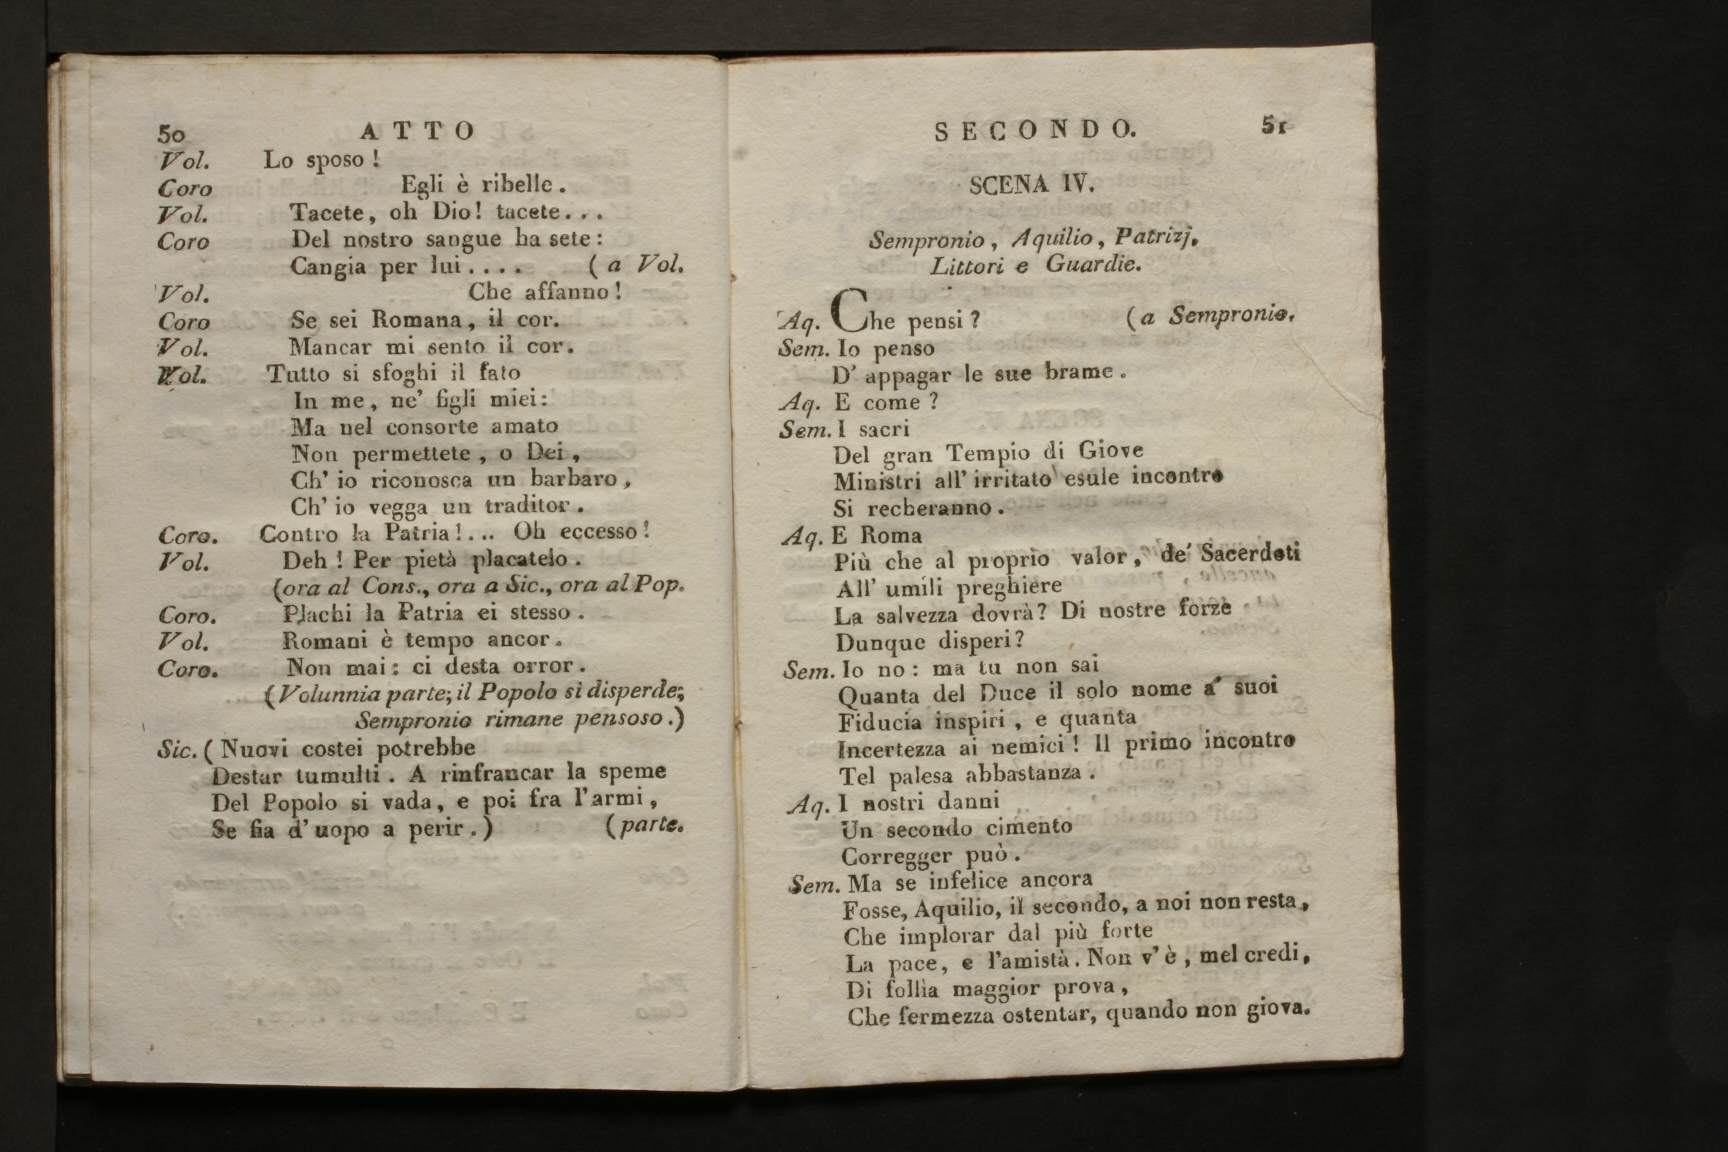 50 ATTO
Vol. Lo sposo!
Coro Egli è ribelle.
Vol. Tacete, oh Dio! tacete...
Coro Del nostro sangue ha sete:
Cangia per lui.... (a Vol.
Vol. Che affanno!
Coro Se sei Romana, il cor.
Vol. Mancar mi sento il cor.
Vol. Tutto si sfoghi il fato
In me, ne' figli miei:
Ma nel consorte amato
Non permettete, o Dei,
Ch' io riconosca un barbaro,
Ch' io vegga un traditor.
Coro. Contro la Patria!... Oh eccesso!
Vol. Deh! Per pietà placatelo.
(ora al Cons., ora a Sic., ora al Pop.
Coro. Plachi la Patria ei stesso.
Vol. Romani è tempo ancor.
Coro. Non mai: ci desta orror.
(Volunnia parte; il Popolo si disperde;
Sempronio rimane pensoso.)
Sic. (Nuovi costei potrebbe
Destar tumulti. A rinfrancar la speme
Del Popolo si vada, e poi fra l'armi,
Se fia d'uopo a perir.) (parte.
SECONDO. 51
SCENA IV.
Sempronio, Aquilio, Patrizj,
Littori e Guardie.
Aq. Che pensi? (a Sempronio.
Sem. Io penso
D' appagar le sue brame.
Aq. E come?
Sem. I sacri
Del gran Tempio di Giove
Ministri all' irritato esule incontro
Si recheranno.
Aq. E Roma
Più che al proprio valor, de' Sacerdoti
All' umili preghiere
La salvezza dovrà? Di nostre forze
Dunque disperi?
Sem. Io no: ma tu non sai
Quanta del Duce il solo nome a' suoi
Fiducia inspiri, e quanta
Incertezza ai nemici! Il primo incontro
Tel palesa abbastanza.
Aq. I nostri danni
Un secondo cimento
Corregger può.
Sem. Ma se infelice ancora
Fosse, Aquilio, il secondo, a noi non resta,
Che implorar dal più forte
La pace, e l'amistà. Non v'è, mel credi,
Di follìa maggior prova,
Che fermezza ostentar, quando non giova.